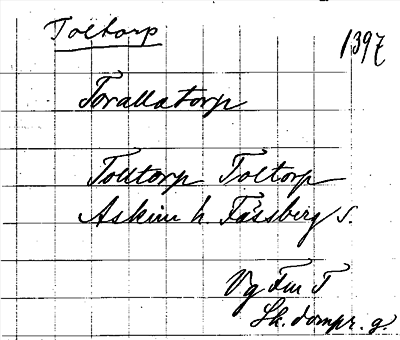 Toltorp
1397
Torallatorp
Tolltorp Toltorp
Askim h. Fässberg s.
Vg Fm T
Sk. dompr. g.